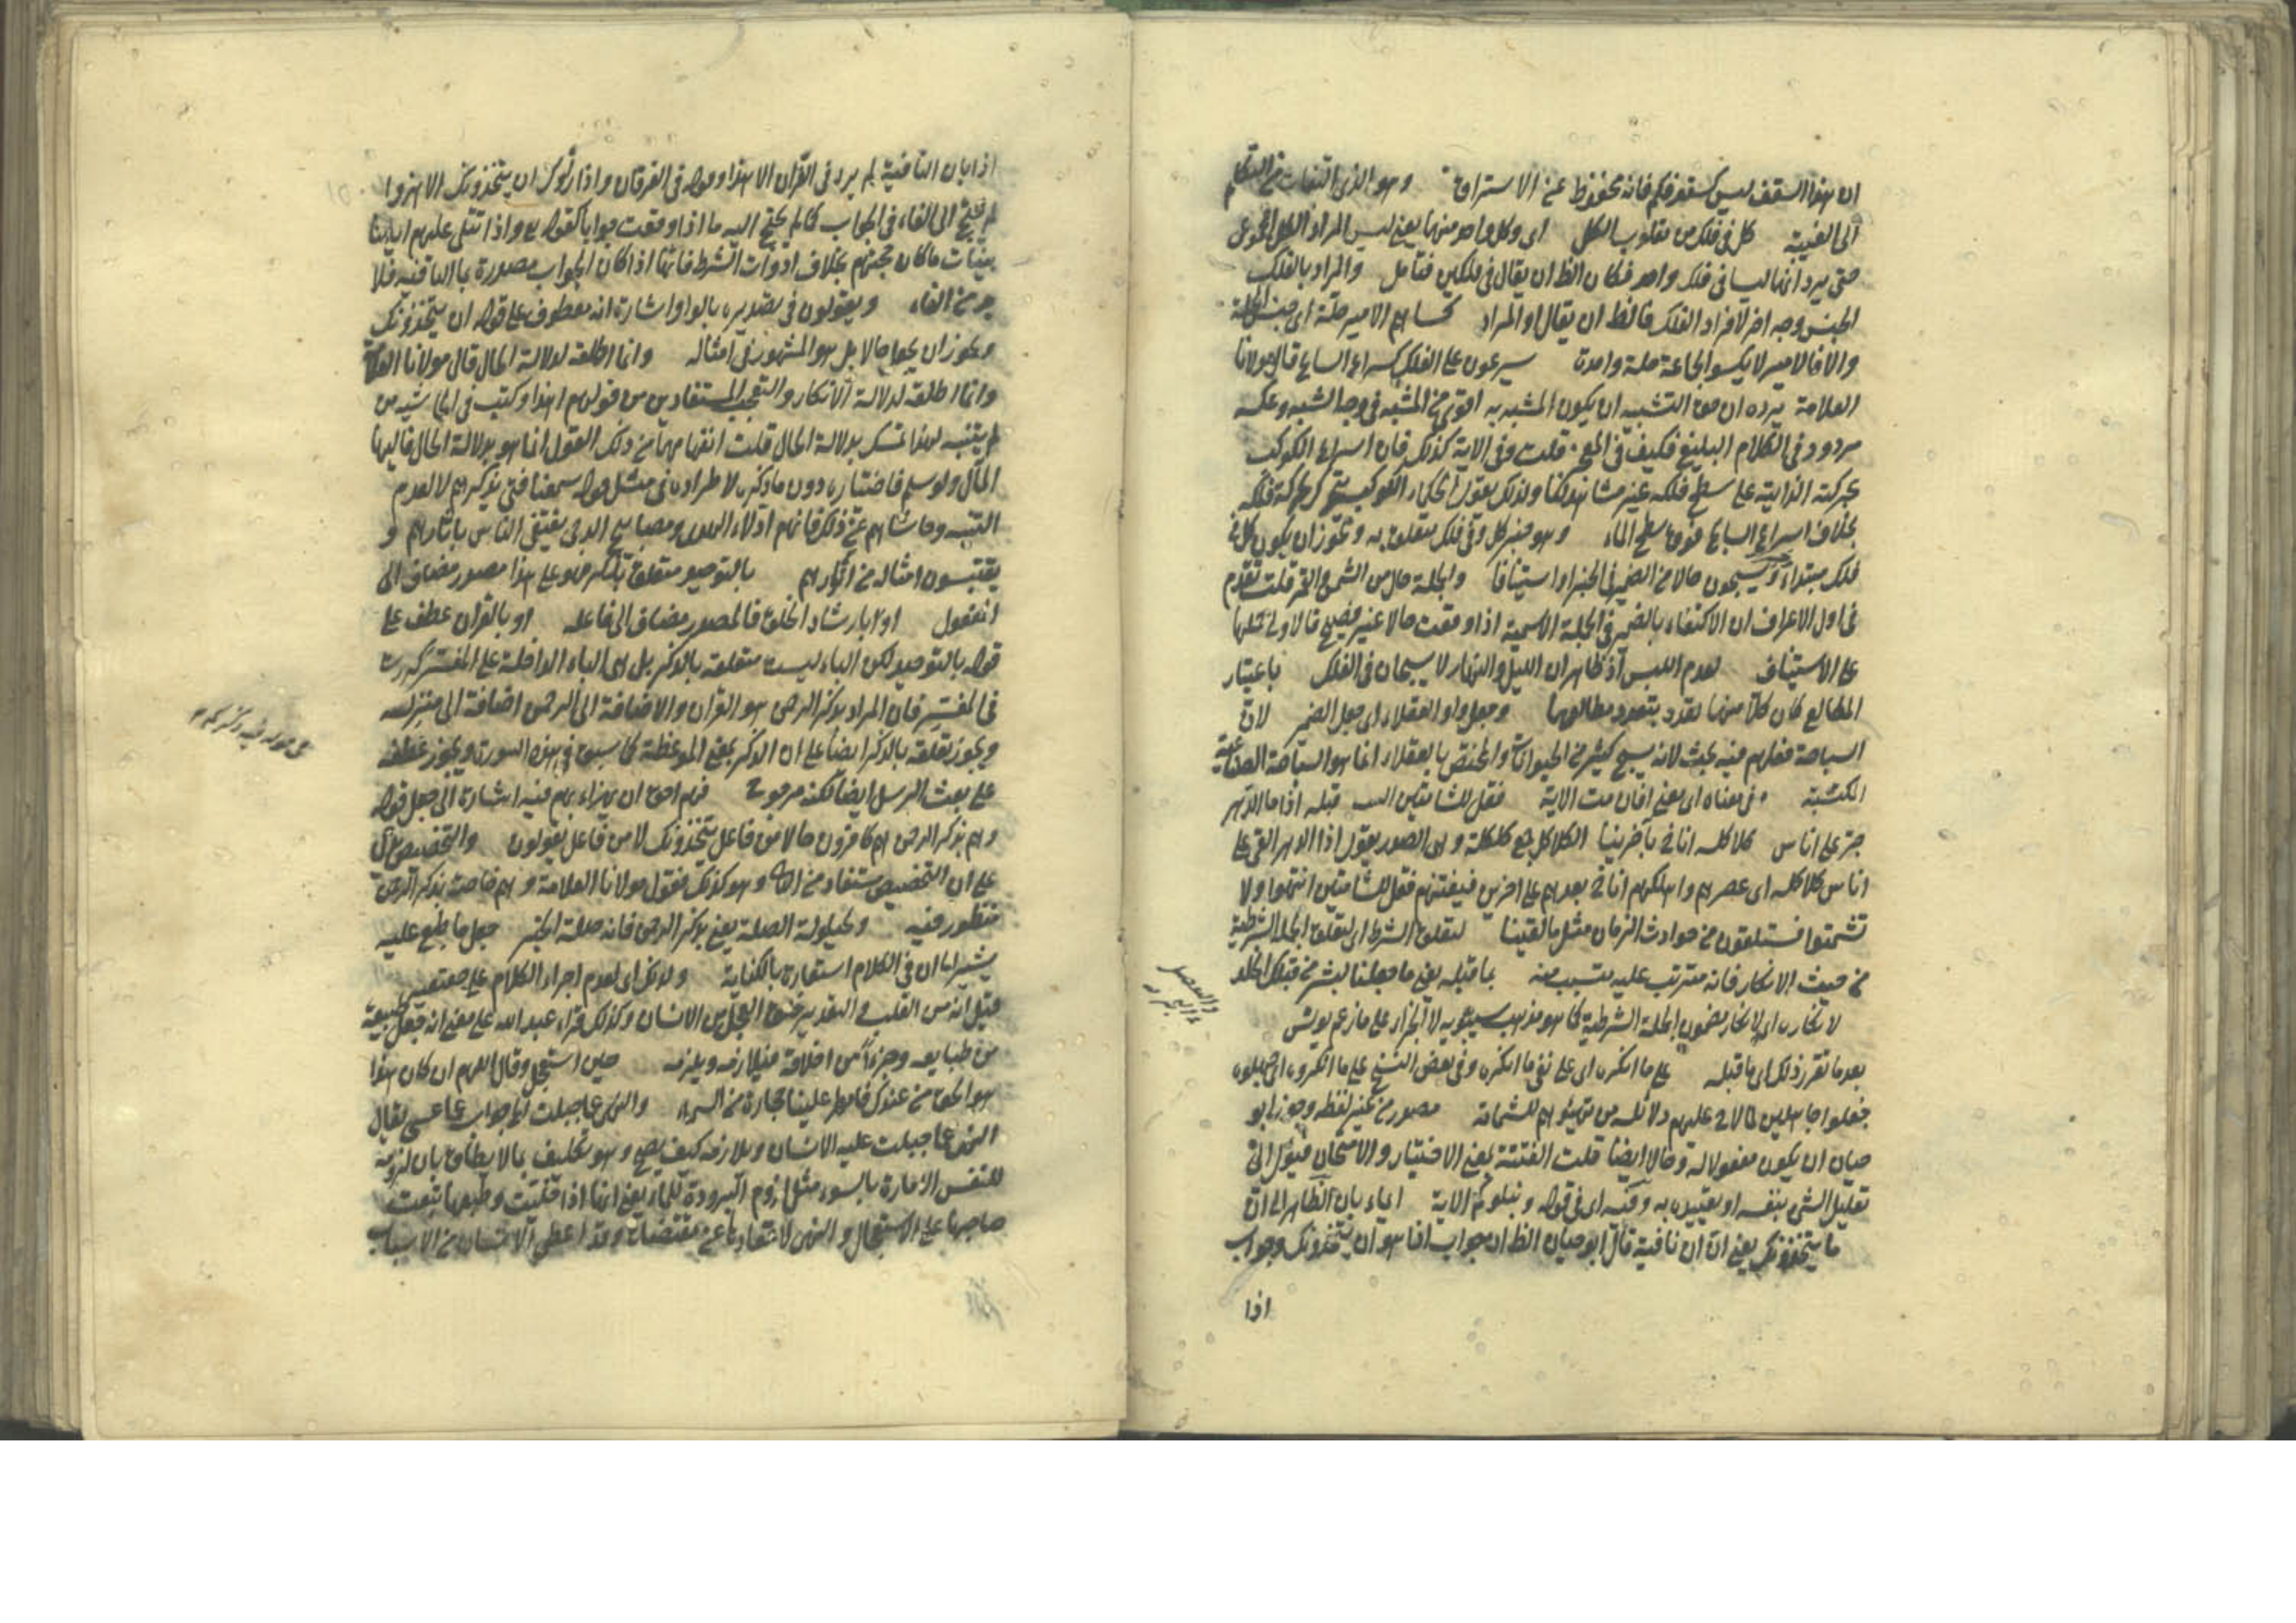 ان هذا السقف ليس كسقوفكم فانه محفوظ عن الاستراق وهو الذى التفات من التكلم
الى الغيبة كل فى فلك من مقلوب الكل اى وكل واحد منهما يعنى ليس المراد الكل المجموعى
حتى يرد انهما ليسا فى فلك واحد فكان الظ ان يقال فى فلكين فتأمل والمراد بالفلك
الجنس وجه اخر لافراد الفلك فالظ ان يقال او المراد كساهم الامير حلة اى جنس الحلة
والا فالامير لا يكسو الجماعة حلة واحدة يسرعون على الفلك كسراع السابح قال مولانا
العلامة يرده ان حق التشبيه ان يكون المشبه به اقوى من المشبه فى وجه الشبه وعكسه
مردود فى الكلام البليغ فكيف فى المعجز قلت وفى الاية كذلك فان اسراع الكوكب
بحركته الذاتية على سطح فلكه غير مشاهد لنا ولذلك يقول الحكماء الكوكب يتحرك بحركة فلكه
بخلاف اسراع السابح فوق سطح الماء وهو خبر كل وفى فلك متعلق به ويجوز ان يكون كل فى
فلك مبتداء ويسبحون حالا من الضمير فى الخبر او استينافا والجملة حال من الشمس والقمر قلت تقدم
فى اول الاعراف ان الاكتفاء بالضمير فى الجملة الاسمية اذا وقعت حالا غير فصيح فالاولى حملها
على الاستيناف لعدم اللبس اذ ظاهر ان الليل والنهار لا يسبحان فى الفلك باعتبار
المطالع كان كلا منهما تعدد بتعدد مطالعهما وجعل واو العقلاء اى جعل الضمير لان
السباحة فعلهم فيه بحث لانه يسبح كثير من الحيوانات والمختص بالعقلاء انما هو السباحة الصناعية
المكتسبة فى معناه اى يعنى افان مت الاية فقل للشامتين البيت قبله اذا ما الدهر
جر على اناس كلاكله اناخ بآخرينا الكلاكل جمع كلكلة وهى الصدر يقول اذا الدهر القى على
اناس كلاكله اى عصرهم واهلكهم اناخ بعدهم على اخرين فيفتنهم فقل للشامتين انتهوا ولا
تشمتوا فستلقون من حوادث الزمان مثل ما لقينا لتعلق الشرط اى لتعلق الجملة الشرطية
من حيث الانكار فانه مترتب عليه متسبب منه بما قبله يعنى ما جعلنا لبشر من قبلك الخلد
لانكاره اى لانكار مضمون الجملة الشرطية كما هو مذهب سيبويه لا الجزاء على ما زعم يونس
بعد ما تقرر ذلك اى ما قبله على ما انكره اى على نفى ما انكره وفى بعض النسخ على ما انكروه اى جهلوه
فجعلوا جاهلين لما لاح عليهم دلائله من تهيئهم للشماتة مصدر من غير لفظه وجوز ابو
حيان ان يكون مفعولا له وحالا ايضا قلت الفتنة بمعنى الاختبار والامتحان فيؤل الى
تعليل الشئ بنفسه او تقييده به وفيه اى فى قوله ونبلوكم الاية ايماء بان الظاهر الى ان
ما يتخذونك يعنى ان ان نافية قال ابو حيان الظ ان جواب اذا هو ان يتخذونك وجواب
اذا
اذا بان النافية لم يرد فى القرآن الا هذا وقوله فى الفرقان واذا رأوك ان يتخذونك الا هزوا
لم يحتج الى الفاء فى الجواب كما لم يحتج اليه ما اذا وقعت جوابا كقوله تع واذا تتلى عليهم اياتنا
بينات ما كان حجتهم بخلاف ادوات الشرط فانها اذا كان الجواب مصدرة بما النافية فلا
بد من الفاء ويقولون فى تقديره بالواو اشارة انه معطوف على قوله ان يتخذونك
ويجوز ان يجعل حالا بل هو المشهور فى امثاله وانما اطلقه لدلالة الحال قال مولانا العلامة
وانما اطلقه لدلالة الانكار والتعجب المستفادين من قولهم اهذا وكتب فى الحاشية من
لم يتنبه لهذا تمسك بدلالة الحال قلت انفهامهما من ذلك القول انما هو بدلالة الحال فاليها
المآل ولو سلم فاختياره دون ما ذكره لاطراده فى مثل قوله سمعنا فتى يذكرهم لا لعدم
التنبه وحاشاهم عن ذلك فانهم ادلاء الهدى ومصابيح الدجى يقتفى الناس بآثارهم و
يقتبسون امثاله من انوارهم بالتوحيد متعلق بذكر وعلى هذا مصدر مضاف الى
المفعول او بارشاد الخلق فالمصدر مضاف الى فاعله او بالقرآن عطف على
قوله بالتوحيد لكن الباء ليست متعلقة بالذكر بل هى الباء الداخلة على المفسر كررت
فى المفسر فان المراد بذكر الرحمن هو القرآن والاضافة الى الرحمن اضافة الى منزله
ويجوز تعلقه بالذكر ايضا على ان الذكر بمعنى الموعظة كما سبق فى هذه السورة ويجوز عطفه
على بعث الرسل ايضا لكنه مرجوح فهم احق ان يهزاء بهم فيه اشارة الى جعل قوله
وهم بذكر الرحمن هم كافرون حالا من فاعل يتخذونك لا من فاعل يقولون والتخصيص
على ان التخصيص مستفاد من وهو كذلك فقول مولانا العلامة وهم خاصة بذكر الرحمن
منظور فيه ولحيلولة الصلة يعنى بذكر الرحمن فانه صلة الخبر جعل ما طبع عليه
يشير الى ان فى الكلام استعارة بالكناية ولذلك اى لعدم اجراء الكلام على حقيقته
قيل انه من القلب والتقدير خلق العجل من الانسان وكذلك قراء عبد الله على معنى انه جعل طبيعة
من طبايعه وجزءا من اخلاقه فيلازمه ويلزمه حين استعجل وقال اللهم ان كان هذا
هو الحق من عندك فامطر علينا حجارة من السماء والنهى عما جبلت الخ جواب عما عسى يقال
النهى عما جبلت عليه الانسان ويلازمه كيف يصح وهو تكليف بما لا يطاق بان لزومه
للنفس الامارة بالسوء مثل لزوم البرودة للماء يعنى انها اذا خليت وطبعها تبعث
صاحبها على الاستعجال والنهى لانتقادها عن مقتضاه وقد اعطى الانسان من الاسباب